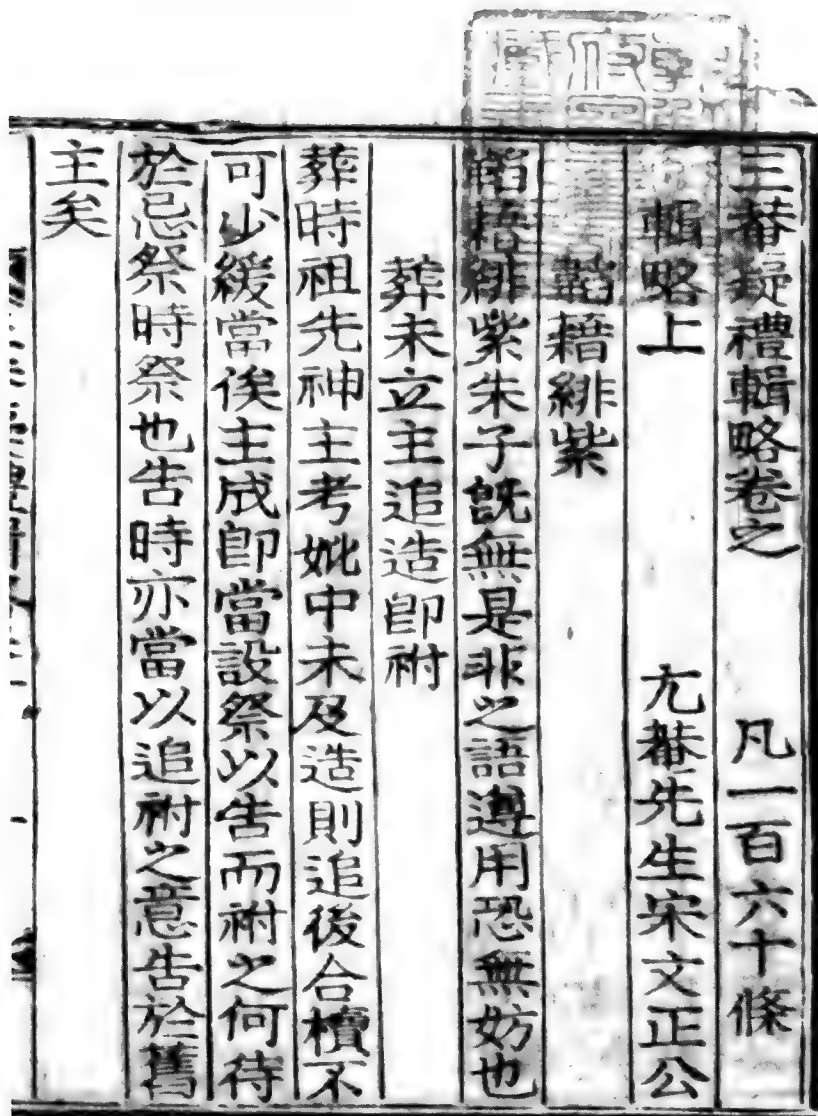 三菴疑禮輯略卷之　凡一百六十條
輯略上　尤菴先生宋文正公
韜藉緋紫
韜藉緋紫朱子旣無是非之語遵用恐無妨也
葬未立主追造卽祔
葬時祖先神主考妣中未及造則追後合櫝不
可少緩當俟主成卽當設祭以告而祔之何待
於忌祭時祭也告時亦當以追祔之意告於舊
主矣